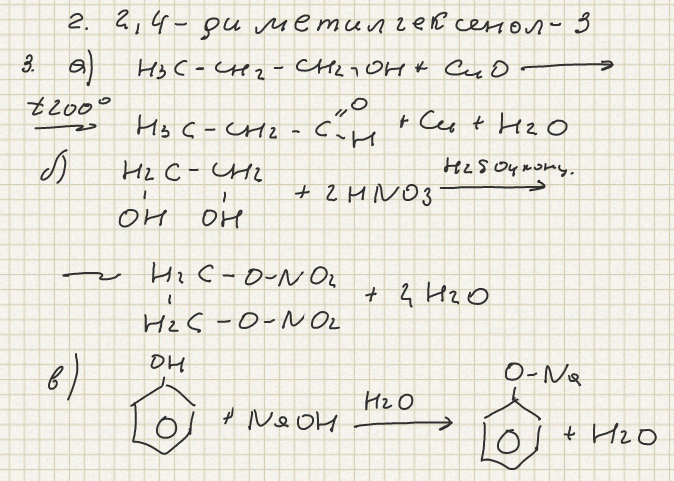 2. 2,4-диметилгексенол-3
3. а) H3C-CH2-CH2-OH + CuO →
t200° → H3C-CH2-C=O-H + Cu + H2O
б) H2C-CH2 + 2HNO3 H2SO4 конц. →
OH OH
H2C-O-NO2 + 2H2O
H2C-O-NO2
OH O-Na
в) + NaOH H2O → + H2O